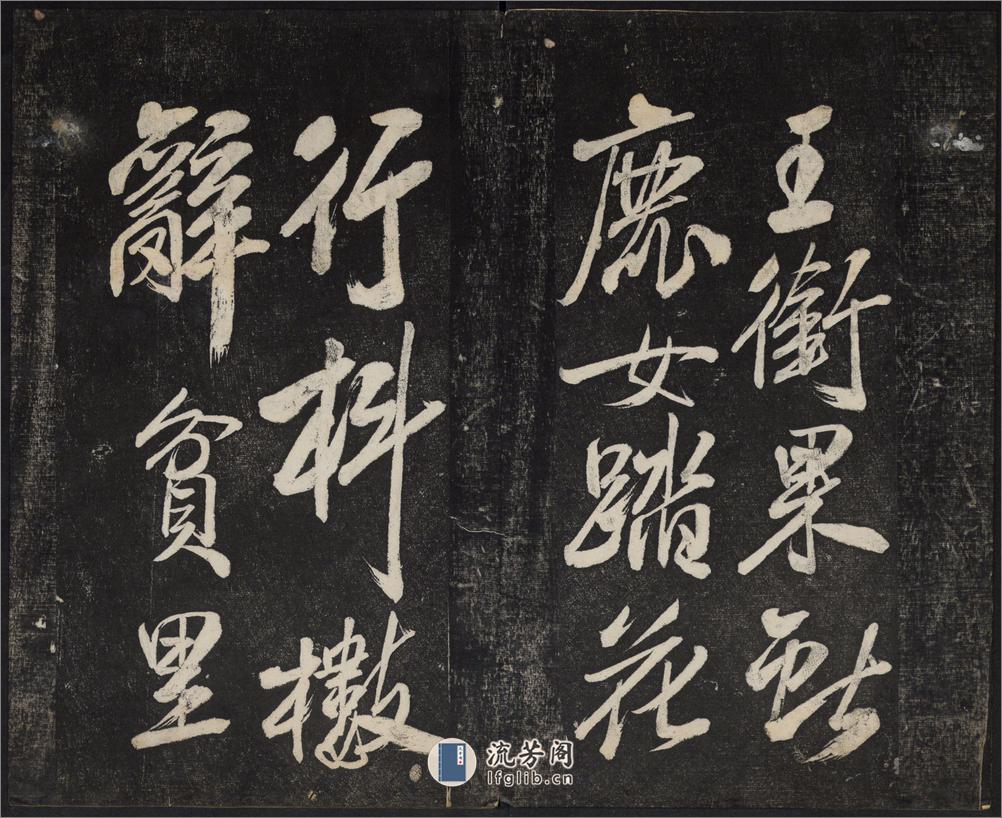 王銜果獻
鹿女踏花
行抖擻
辭貧里
流芳阁
lfglib.cn